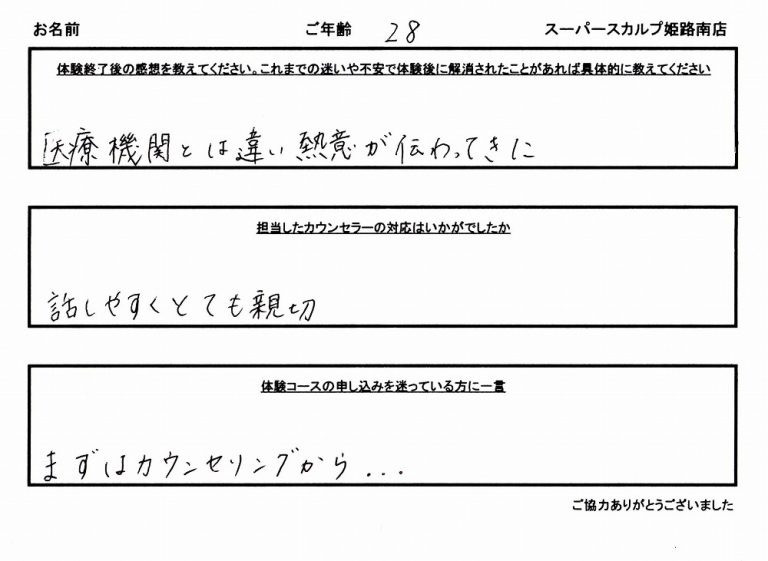 お名前 ご年齢 28 スーパースカルプ姫路南店
体験終了後の感想を教えてください。これまでの迷いや不安で体験後に解消されたことがあれば具体的に教えてください
医療機関とは違い熱意が伝わってきた
担当したカウンセラーの対応はいかがでしたか
話しやすくとても親切
体験コースの申し込みを迷っている方に一言
まずはカウンセリングから...
ご協力ありがとうございました